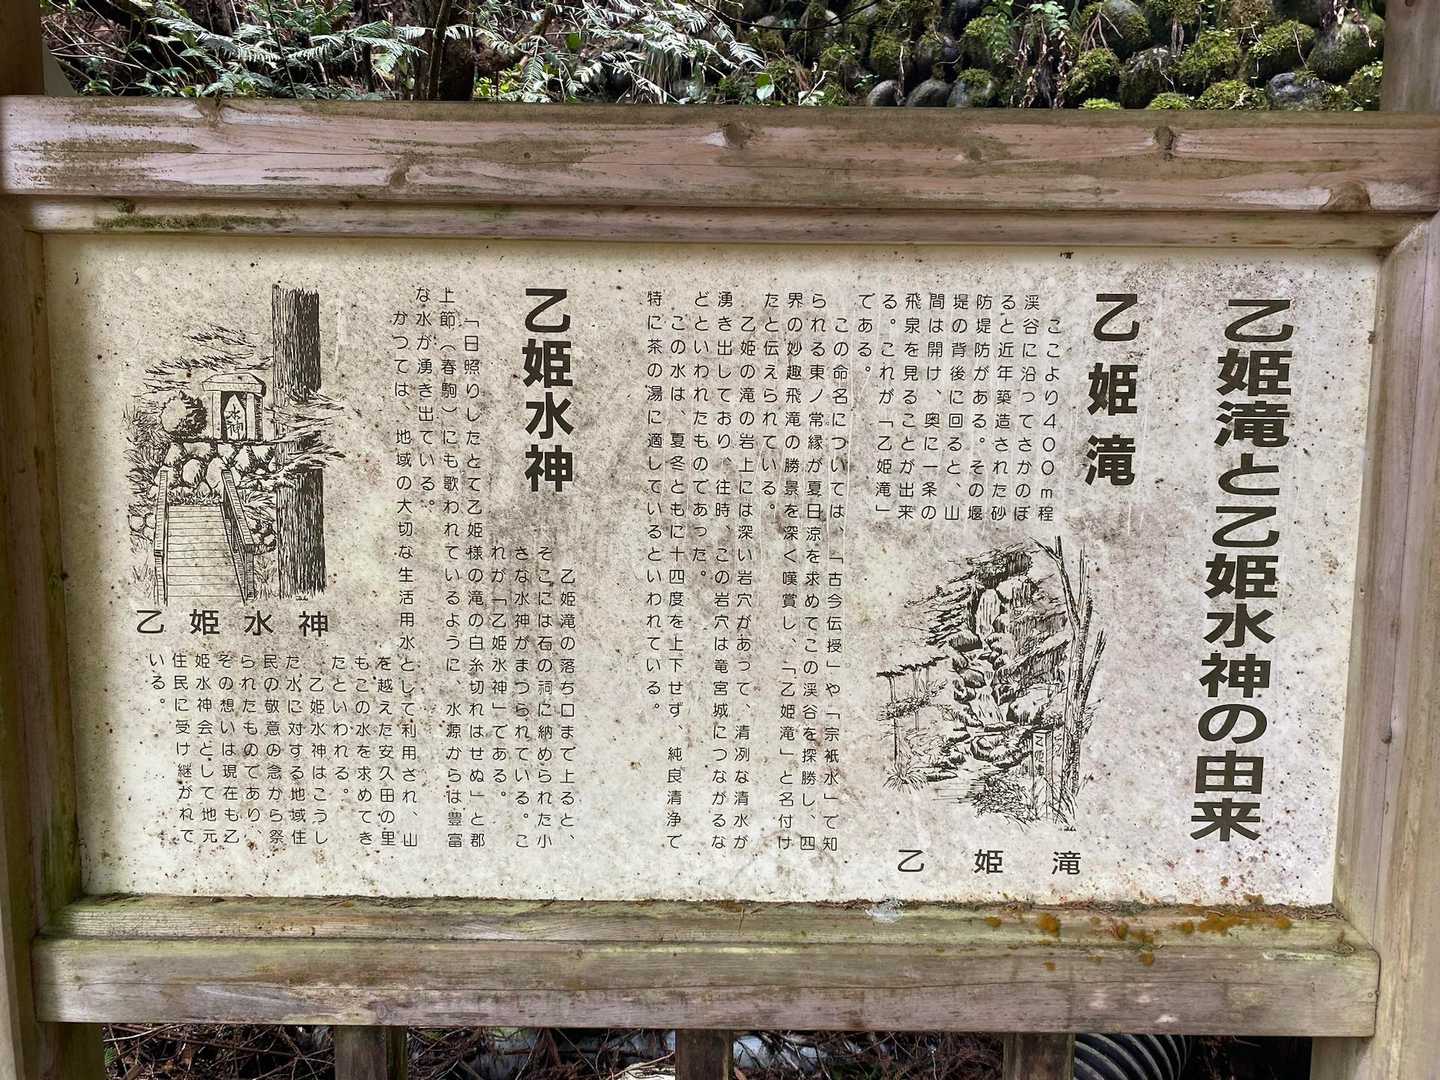 乙姫滝と乙姫水神の由来
乙姫滝
ここより400m程
渓谷に沿ってさかのぼ
ると近年築造された砂
防堤防がある。その堰
堤の背後に回ると、山
間は開け、奥に一条の
飛泉を見ることが出来
る。これが「乙姫滝」
である。
この命名については、「古今伝授」や「宗祇水」で知
られる東ノ常縁が夏日涼を求めてこの渓谷を探勝し、四
界の妙趣飛滝の勝景を深く嘆賞し、「乙姫滝」と名付け
たと伝えられている。
乙姫の滝の岩上には深い岩穴があって、清冽な清水が
湧き出しており、往時、この岩穴は竜宮城につながるな
どといわれたものであった。
この水は、夏冬ともに十四度を上下せず、純良清浄で
特に茶の湯に適しているといわれている。
乙姫滝
乙姫滝
乙姫水神
乙姫滝の落ち口まで上ると、
そこには石の祠に納められた小
さな水神がまつられている。こ
れが「乙姫水神」である。
「日照りしたとて乙姫様の滝の白糸切れはせぬ」と郡
上節(春駒)にも歌われているように、水源からは豊富
な水が湧き出ている。
かつては、地域の大切な生活用水として利用され、山
を越えた安久田の里
もこの水を求めてき
たといわれる。
乙姫水神はこうし
た水に対する地域住
民の敬意の念から祭
られたものであり、
その想いは現在も乙
姫水神会として地元
住民に受け継がれて
いる。
水神
乙姫水神